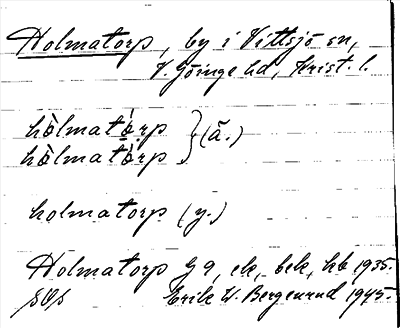 Holmatorp, by i Vittsjö sn,
V. Göinge hd, Krist. l.
hòlmatò̩rp } (ä.)
hòlmatò̩rp
holmatorp (y.)
Holmatorp G 9, ek, bek, hb 1935.
Erik W. Bergenrud 1945.